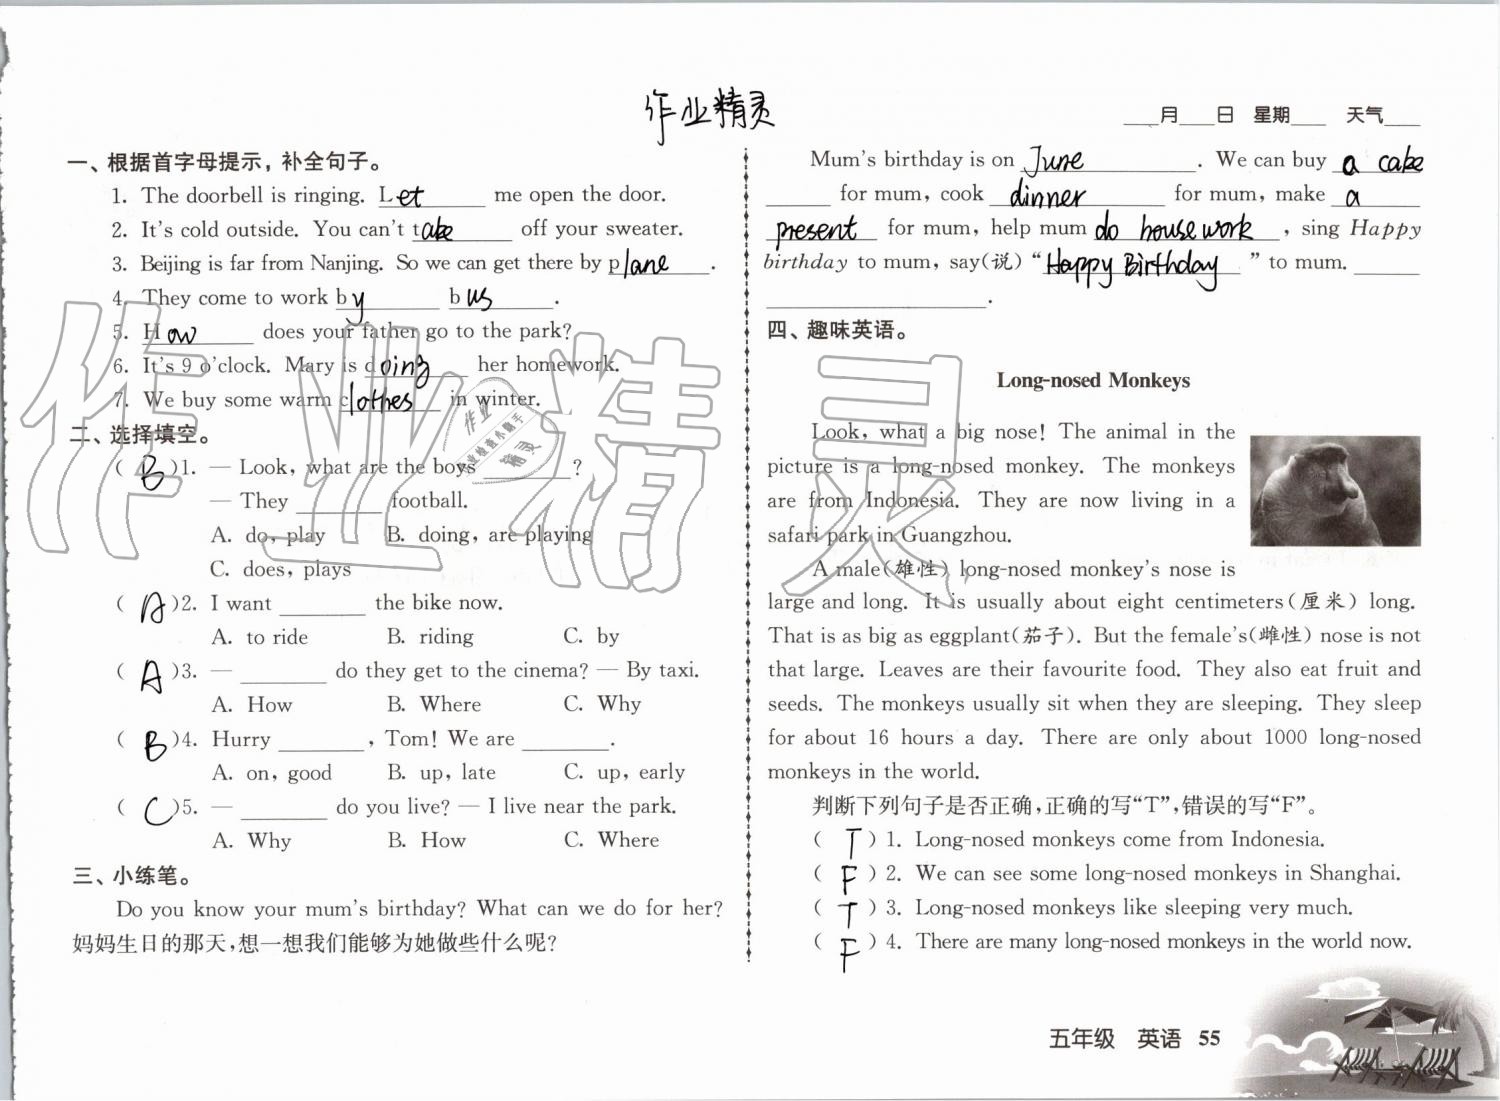 作业精灵
月____日 星期____ 天气____
一、根据首字母提示，补全句子。
1. The doorbell is ringing. Let me open the door.
2. It's cold outside. You can't take off your sweater.
3. Beijing is far from Nanjing. So we can get there by plane.
4. They come to work by bus.
5. How does your father go to the park?
6. It's 9 o'clock. Mary is doing her homework.
7. We buy some warm clothes in winter.
二、选择填空。
( B )1. — Look, what are the boys ________?
— They ________ football.
A. do, play B. doing, are playing
C. does, plays
( A )2. I want ________ the bike now.
A. to ride B. riding C. by
( A )3. — ________ do they get to the cinema? — By taxi.
A. How B. Where C. Why
( B )4. Hurry ________, Tom! We are ________.
A. on, good B. up, late C. up, early
( C )5. — ________ do you live? — I live near the park.
A. Why B. How C. Where
三、小练笔。
Do you know your mum's birthday? What can we do for her?
妈妈生日的那天，想一想我们能够为她做些什么呢？
Mum's birthday is on June. We can buy a cake
for mum, cook dinner for mum, make a
present for mum, help mum do housework, sing Happy
birthday to mum, say(说) “Happy Birthday” to mum. ______
____________.
四、趣味英语。
Long-nosed Monkeys
Look, what a big nose! The animal in the
picture is a long-nosed monkey. The monkeys
are from Indonesia. They are now living in a
safari park in Guangzhou.
A male(雄性) long-nosed monkey's nose is
large and long. It is usually about eight centimeters(厘米) long.
That is as big as eggplant(茄子). But the female's(雌性) nose is not
that large. Leaves are their favourite food. They also eat fruit and
seeds. The monkeys usually sit when they are sleeping. They sleep
for about 16 hours a day. There are only about 1000 long-nosed
monkeys in the world.
判断下列句子是否正确，正确的写“T”，错误的写“F”。
( T ) 1. Long-nosed monkeys come from Indonesia.
( F ) 2. We can see some long-nosed monkeys in Shanghai.
( T ) 3. Long-nosed monkeys like sleeping very much.
( F ) 4. There are many long-nosed monkeys in the world now.
五年级 英语 55
作业精灵
作业
精灵